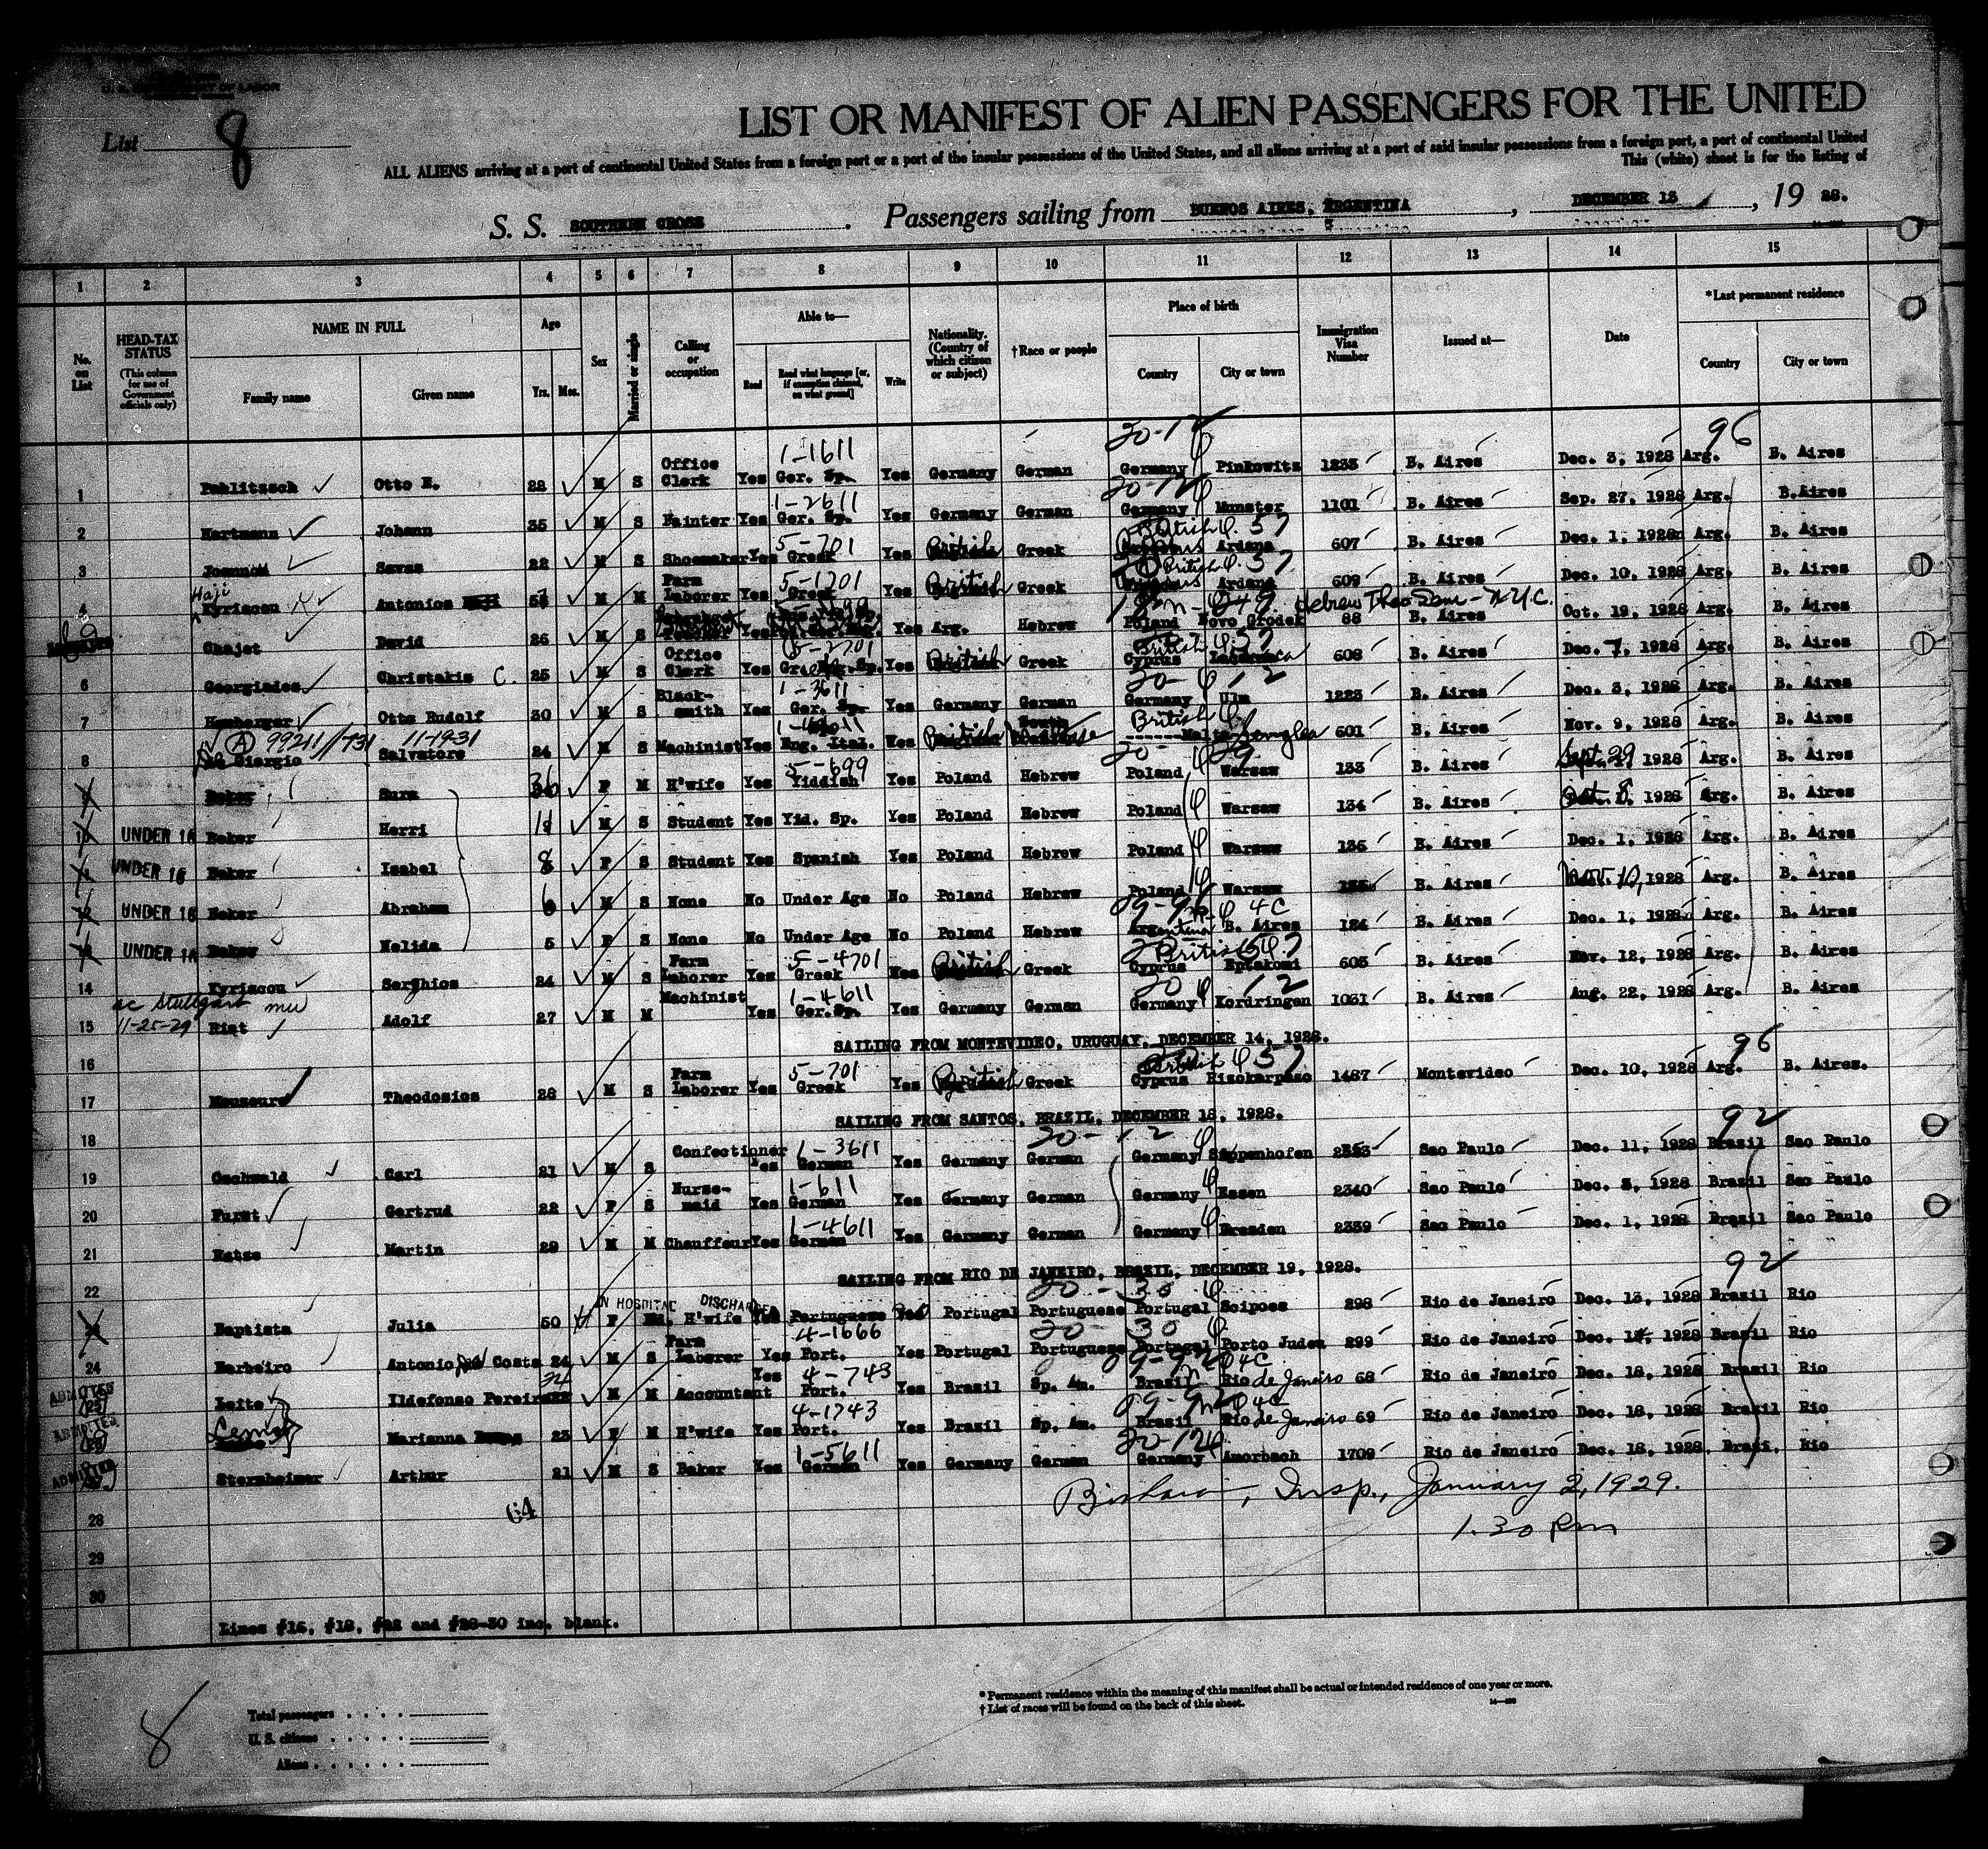 U. S. DEPARTMENT OF LABOR
List 8
LIST OR MANIFEST OF ALIEN PASSENGERS FOR THE UNITED
ALL ALIENS arriving at a port of continental United States from a foreign port or a port of the insular possessions of the United States, and all aliens arriving at a port of said insular possessions from a foreign port, a port of continental United
This (white) sheet is for the listing of
S. S. SOUTHERN CROSS. Passengers sailing from BUENOS AIRES, ARGENTINA, DECEMBER 13, 19 28.
1 2 3 4 5 6 7 8 9 10 11 12 13 14 15
No. on List
HEAD-TAX STATUS (This column for use of Government officials only)
NAME IN FULL Family name Given name
Age Yrs. Mos.
Sex
Married or single
Calling or occupation
Able to— Read Read what language [or, if exemption claimed, on what ground] Write
Nationality. (Country of which citizen or subject)
†Race or people
Place of birth Country City or town
Immigration Visa Number
Issued at—
Date
*Last permanent residence Country City or town
20-12 96
1-1611
1 Otto E. 22 M S Office Clerk Yes Ger. Sp. Yes Germany German Germany Pinkowitz 1235 B. Aires Dec. 3, 1928 Arg. B. Aires
1-2611 20-12
2 Hartmann Johann 35 M S Painter Yes Ger. Sp. Yes Germany German Germany Munster 1101 B. Aires Sep. 27, 1928 Arg. B.Aires
5-701 British 57
3 Joannou Savas 22 M S Shoemaker Yes Greek Yes British Greek Ardana 607 B. Aires Dec. 1, 1928 Arg. B. Aires
5-1701 British 57
4 Haji Kyriacou Antonios M M Farm Laborer Yes Greek Yes British Greek Ardana 609 B. Aires Dec. 10, 1928 Arg. B. Aires
Hebrew Theo Sem - N.Y.C.
Chajet David 26 M S Yes Yes Arg. Hebrew Poland Novo Grodek 88 B. Aires Oct. 19, 1928 Arg. B. Aires
5-2701 British 57
6 Georgiades Christakis C. 25 M S Office Clerk Yes Yes British Greek Cyprus Larnaca 608 B. Aires Dec. 7, 1928 Arg. B. Aires
1-3611 20-12
7 Homberger Otto Rudolf 30 M S Blacksmith Yes Ger. Sp. Yes Germany German Germany Ulm 1223 B. Aires Dec. 3, 1928 Arg. B. Aires
A 99211/731 11-19-31 British
8 Giorgio Salvatore 24 M S Machinist Yes Eng. Ital. Yes British Maltese Malta 601 B. Aires Nov. 9, 1928 Arg. B. Aires
5-699 20-29
9 Beker Sura 36 F M H'wife Yes Yiddish Yes Poland Hebrew Poland Warsaw 133 B. Aires Sept. 29 1928 Arg. B. Aires
10 UNDER 16 Beker Herri 11 M S Student Yes Yid. Sp. Yes Poland Hebrew Poland Warsaw 134 B. Aires 1928 Arg. B. Aires
11 UNDER 16 Beker Isabel 8 F S Student Yes Spanish Yes Poland Hebrew Poland Warsaw 135 B. Aires Dec. 1, 1928 Arg. B. Aires
12 UNDER 16 Beker Abraham 6 M S None No Under Age No Poland Hebrew Poland Warsaw B. Aires Nov. 10, 1928 Arg. B. Aires
09-99 4C
13 UNDER 16 Beker Nelida 5 F S None No Under Age No Poland Hebrew Argentina B. Aires 124 B. Aires Dec. 1, 1928 Arg. B. Aires
5-4701 British 57
14 Kyriacou Serghios 24 M S Farm Laborer Yes Greek Yes British Greek Cyprus Eptakomi 605 B. Aires Nov. 12, 1928 Arg. B. Aires
ac Stuttgart 1-4611 20 12
15 11-25-29 Rist Adolf 27 M M Machinist Yes Ger.Sp. Yes Germany German Germany Kordringen 1031 B. Aires Aug. 22, 1928 Arg. B. Aires
16 SAILING FROM MONTEVIDEO, URUGUAY, DECEMBER 14, 1928.
5-701 British 57 96
17 Theodosios 28 M S Farm Laborer Yes Greek Yes British Greek Cyprus Risokarpaso 1487 Montevideo Dec. 10, 1928 Arg. B. Aires.
18 SAILING FROM SANTOS, BRAZIL, DECEMBER 18, 1928.
1-3611 20-12 92
19 Oschwald Carl 21 M S Confectioner Yes German Yes Germany German Germany 2353 Sao Paulo Dec. 11, 1928 Brasil Sao Paulo
1-611
20 Furst Gertrud 22 F S Nurse-maid Yes German Yes Germany German Germany Essen 2340 Sao Paulo Dec. 3, 1928 Brasil Sao Paulo
1-4611
21 Martin 29 M M Chauffeur Yes German Yes Germany German Germany Dresden 2339 Sao Paulo Dec. 1, 1928 Brasil Sao Paulo
22 SAILING FROM RIO DE JANEIRO, BRAZIL, DECEMBER 19, 1928.
IN HOSPITAL DISCHARGED 20-30 92
Baptista Julia 50 F H'wife Yes Portuguese Yes Portugal Portuguese Portugal 298 Rio de Janeiro Dec. 13, 1928 Brasil Rio
4-1666 20-30
24 Barbeiro Antonio Costa 24 M S Farm Laborer Yes Port. Yes Portugal Portuguese Portugal Porto Judeu 299 Rio de Janeiro Dec. 1928 Brasil Rio
4-743 09-92 4C
ADMITTED 25 Leite Ildefonso Pereira 34 M M Accountant Yes Port. Yes Brasil Sp. Am. Brasil Rio de Janeiro 68 Rio de Janeiro Dec. 18, 1928 Brasil Rio
4-1743 09-92 4C
ADMITTED 26 Marianna 23 F M H'wife Yes Port. Yes Brasil Sp. Am. Brasil Rio de Janeiro 69 Rio de Janeiro Dec. 18, 1928 Brasil Rio
1-5611 20-12
ADMITTED Sternheimer Arthur 21 M S Baker Yes German Yes Germany German Germany Amorbach 1709 Rio de Janeiro Dec. 18, 1928. Brasi. Rio
64
28 Insp., January 2, 1929.
1.30 Pm
29
30
Lines #16, #18, #22 and #28-30 inc. blank.
8
Total passengers
U. S. citizens
Aliens
* Permanent residence within the meaning of this manifest shall be actual or intended residence of one year or more.
† List of races will be found on the back of this sheet.